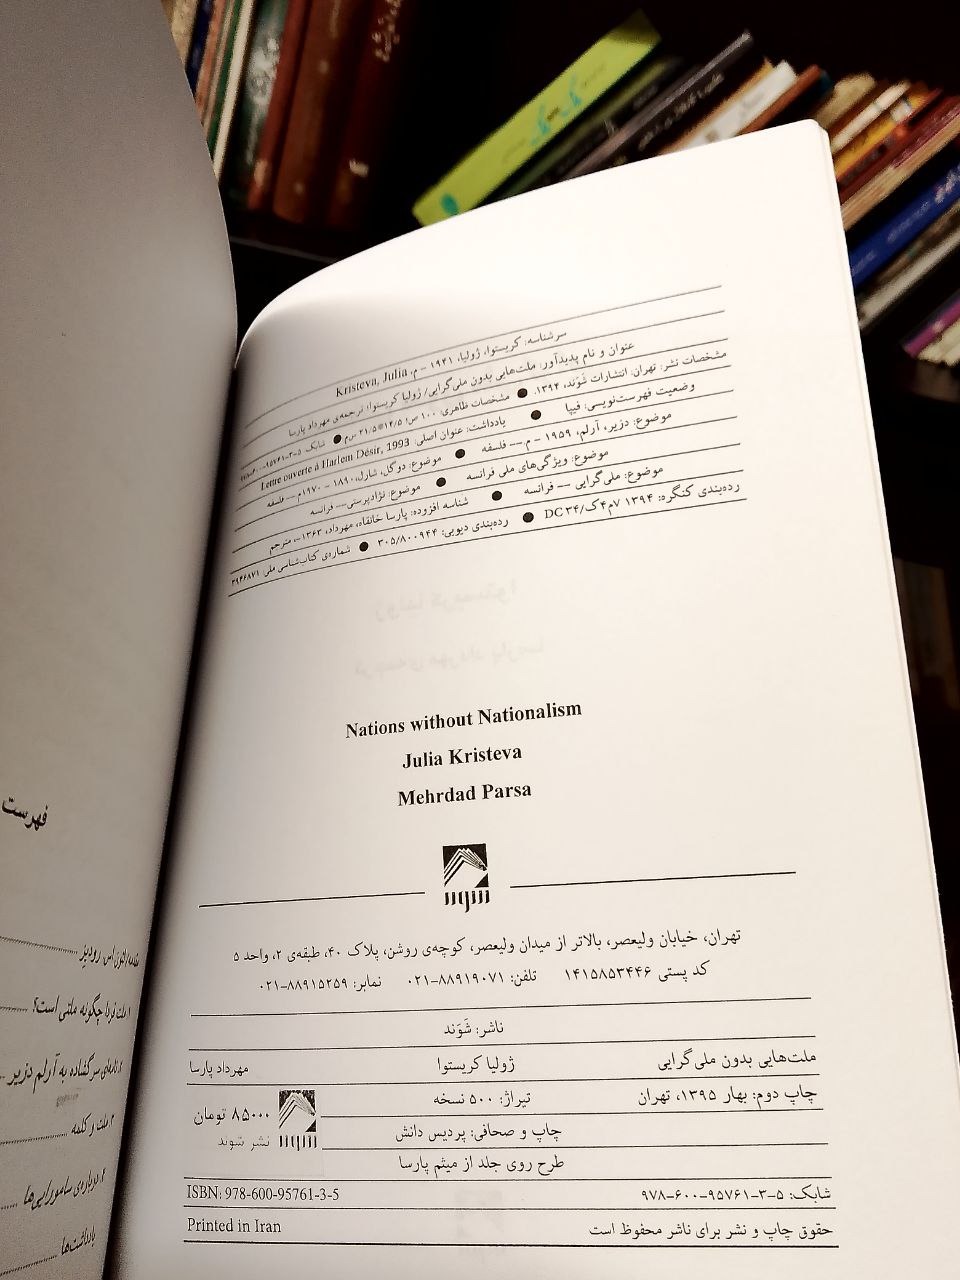 سرشناسه: کریستوا، ژولیا، ۱۹۴۱ - م. Kristeva, Julia
عنوان و نام پدیدآور: ملت‌هایی بدون ملی‌گرایی/ ژولیا کریستوا؛ ترجمه‌ی مهرداد پارسا
مشخصات نشر: تهران: انتشارات شَوَند، ۱۳۹۴. ● مشخصات ظاهری: ۱۰۰ ص؛ ۱۴/۵*۲۱/۵ س‌م ● شابک: ۵-۳-۹۵۷۶۱-۶۰۰-۹۷۸
وضعیت فهرست‌نویسی: فیپا ● یادداشت: عنوان اصلی: Lettre ouverte à Harlem Désir, 1993
موضوع: دزیر، آرلم، ۱۹۵۹ - م -- فلسفه ● موضوع: دوگل، شارل، ۱۸۹۰ - ۱۹۷۰م -- فلسفه
موضوع: ویژگی‌های ملی فرانسه ● موضوع: نژادپرستی-- فرانسه
موضوع: ملی‌گرایی -- فرانسه ● شناسه افزوده: پارسا خانقاه، مهرداد، ۱۳۶۳-، مترجم
رده‌بندی کنگره: ۱۳۹۴ ۷م۴ک/DC ۳۴ ● رده‌بندی دیویی: ۳۰۵/۸۰۰۹۴۴ ● شماره‌ی کتاب‌شناسی ملی: ۳۹۴۶۸۷۱
Nations without Nationalism
Julia Kristeva
Mehrdad Parsa
شوند
تهران، خیابان ولیعصر، بالاتر از میدان ولیعصر، کوچه‌ی روشن، پلاک ۴۰، طبقه‌ی ۲، واحد ۵
کد پستی ۱۴۱۵۸۵۳۴۴۶ تلفن: ۸۸۹۱۹۰۷۱-۰۲۱ نمابر: ۸۸۹۱۵۲۵۹-۰۲۱
ناشر: شَوَند
ملت‌هایی بدون ملی‌گرایی ژولیا کریستوا مهرداد پارسا
چاپ دوم: بهار ۱۳۹۵، تهران تیراژ: ۵۰۰ نسخه ۸۵۰۰۰ تومان
چاپ و صحافی: پردیس دانش نشر شوند
شوند
طرح روی جلد از میثم پارسا
شابک: ۵-۳-۹۵۷۶۱-۶۰۰-۹۷۸ ISBN: 978-600-95761-3-5
حقوق چاپ و نشر برای ناشر محفوظ است Printed in Iran
فهرست
مقدمه/لئون اس. رودیز
۱ ملت فردا چگونه ملتی است؟
۲ نامه‌ای سرگشاده به آرلم دزیر
۳ ملت و کلمه
۴ درباره‌ی سامورایی‌ها
یادداشت‌ها